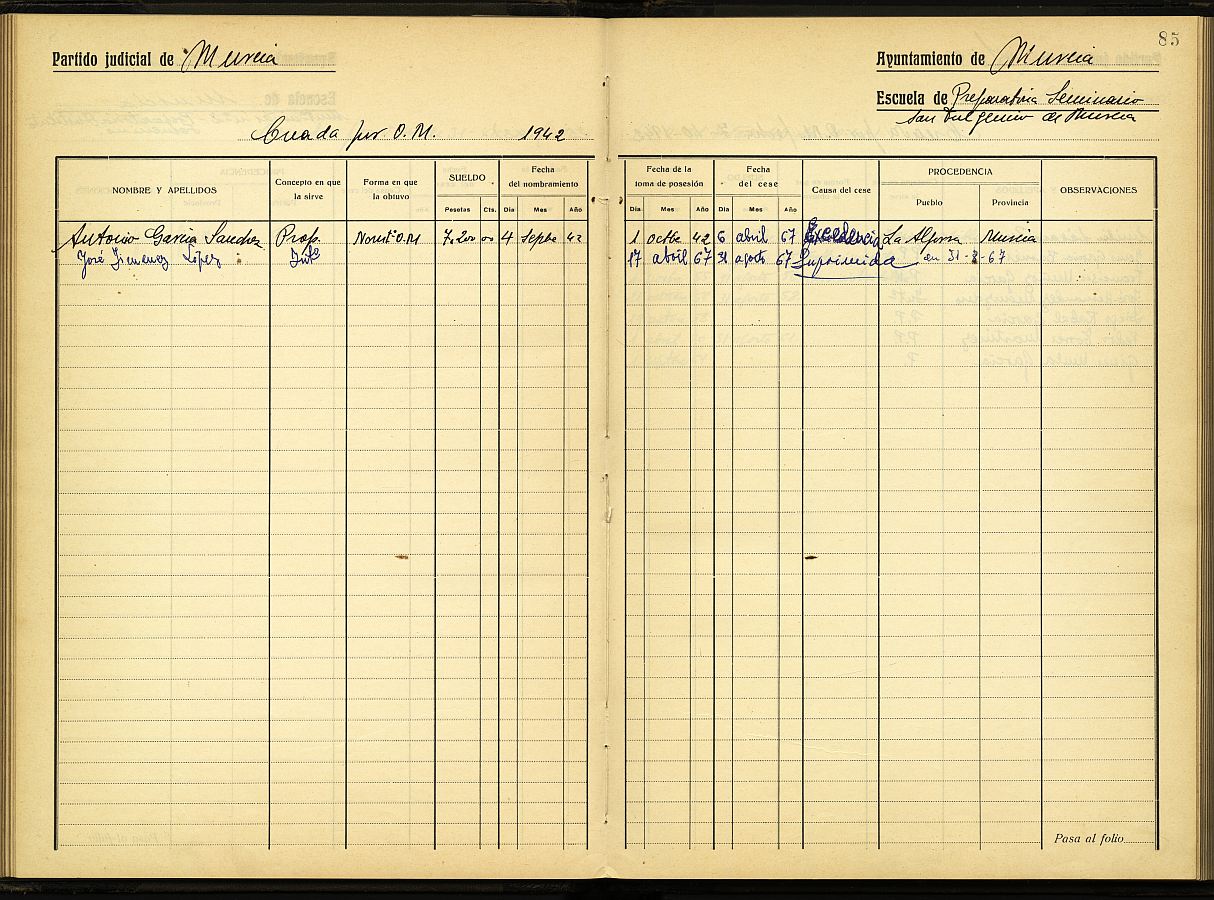 85
Partido judicial de Murcia
Ayuntamiento de Murcia
Escuela de Preparatoria Seminario
San Fulgencio de Murcia
Creada por O.M. 1942
NOMBRE Y APELLIDOS
Concepto en que
la sirve
Forma en que
la obtuvo
SUELDO
Pesetas Cts.
Fecha
del nombramiento
Día Mes Año
Fecha de la
toma de posesión
Día Mes Año
Fecha
del cese
Día Mes Año
Causa del cese
PROCEDENCIA
Pueblo Provincia
OBSERVACIONES
Antonio García Sanchez Prop. Nombtº O.M 7.200 00 4 Septbe 42 1 octbe 42 6 abril 67 Excedencia La Murcia
José Jimenez López Intº 17 abril 67 31 agosto 67 Suprimida en 31-8-67
Pasa al folio